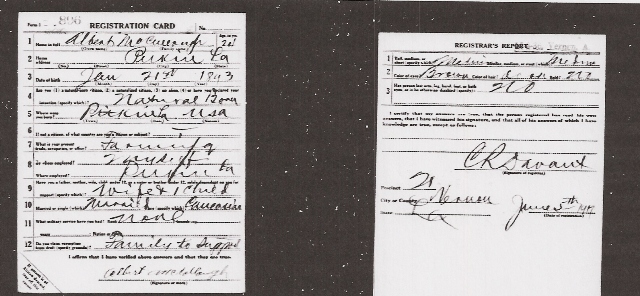 Form 1
REGISTRATION CARD No.
1 Name in full Albert McCullough Age, in yrs.
2 Home address Pitkin La
3 Date of birth Jan 21st 1893
4 Natural Born
5 Where were you born? Pitkin La USA
6 If not a citizen, of what country are you a citizen or subject?
7 What is your present trade, occupation, or office? Farming
8 By whom employed? Myself
Where employed? Pitkin La
9 Have you a father, mother, wife, child under 12, or a sister or brother under 12, solely dependent on you for support (specify which)? Wife & Child
10 Married or single (which)? Married Race (specify which)? Caucasian
11 What military service have you had? None
12 Do you claim exemption from draft (specify grounds)? Family to Support
I affirm that I have verified above answers and that they are true.
Albert McCullough
(Signature or mark)
REGISTRAR'S REPORT
1 Tall, medium, or short (specify which)? Medium Slender, medium, or stout (which)? Medium
2 Color of eyes? Brown Color of hair? Bald? No
3 Has person lost arm, leg, hand, foot, or both eyes, or is he otherwise disabled (specify)? No
I certify that my answers are true, that the person registered has read his own answers, that I have witnessed his signature, and that all of his answers of which I have knowledge are true, except as follows:
C R Davant
(Signature of registrar)
Precinct
City or County Vernon
State La June 5th 1917
(Date of registration)